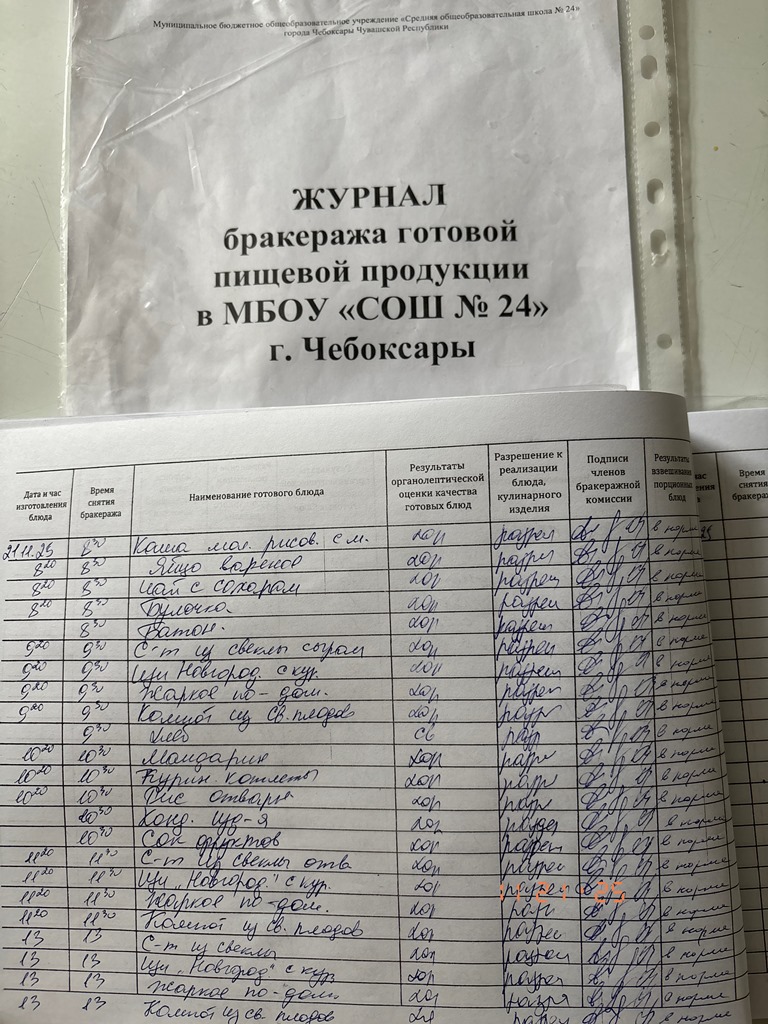 Муниципальное бюджетное общеобразовательное учреждение «Средняя общеобразовательная школа № 24»
города Чебоксары Чувашской Республики
ЖУРНАЛ
бракеража готовой
пищевой продукции
в МБОУ «СОШ № 24»
г. Чебоксары
Дата и час изготовления блюда Время снятия бракеража Наименование готового блюда Результаты органолептической оценки качества готовых блюд Разрешение к реализации блюда, кулинарного изделия Подписи членов бракеражной комиссии Результаты взвешивания порционных блюд
21.11.25 8 30 Каша мол. рисов. с м. хор разреш в норме
8 20 8 30 Яйцо вареное хор разреш в норме
8 20 8 30 Чай с сахаром хор разреш в норме
8 20 8 30 Булочка хор разреш в норме
8 30 Батон. хор разреш в норме
9 20 9 30 С-т из свеклы сыром хор разреш в норме
9 20 9 30 Щи Новгород. с кур. хор разреш в норме
9 20 9 30 Жаркое по-дом. хор разреш в норме
9 20 9 30 Компот из св. плодов хор разр в норме
9 30 Хлеб св разр в норме
10 20 10 30 Мандарин хор разреш в норме
10 20 10 30 Курин. котлеты хор разр в норме
10 20 10 30 Рис отварн хор разр в норме
10 30 Конд. изд-я хор разреш в норме
10 30 Сок фруктов хор разреш в норме
11 20 11 30 С-т из свеклы отва хор разреш в норме
11 20 11 30 Щи „Новгород." с кур. хор разреш в норме
11 20 11 30 Жаркое по-дом. хор разр в норме
11 20 11 30 Компот из св. плодов хор разреш в норме
13 13 С-т из свеклы хор разреш в норме
13 13 Щи „Новгород" с кур хор разреш в норме
13 13 Жаркое по-дом. хор разреш в норме
13 13 Компот из св. плодов разреш в норме
11 21 '25